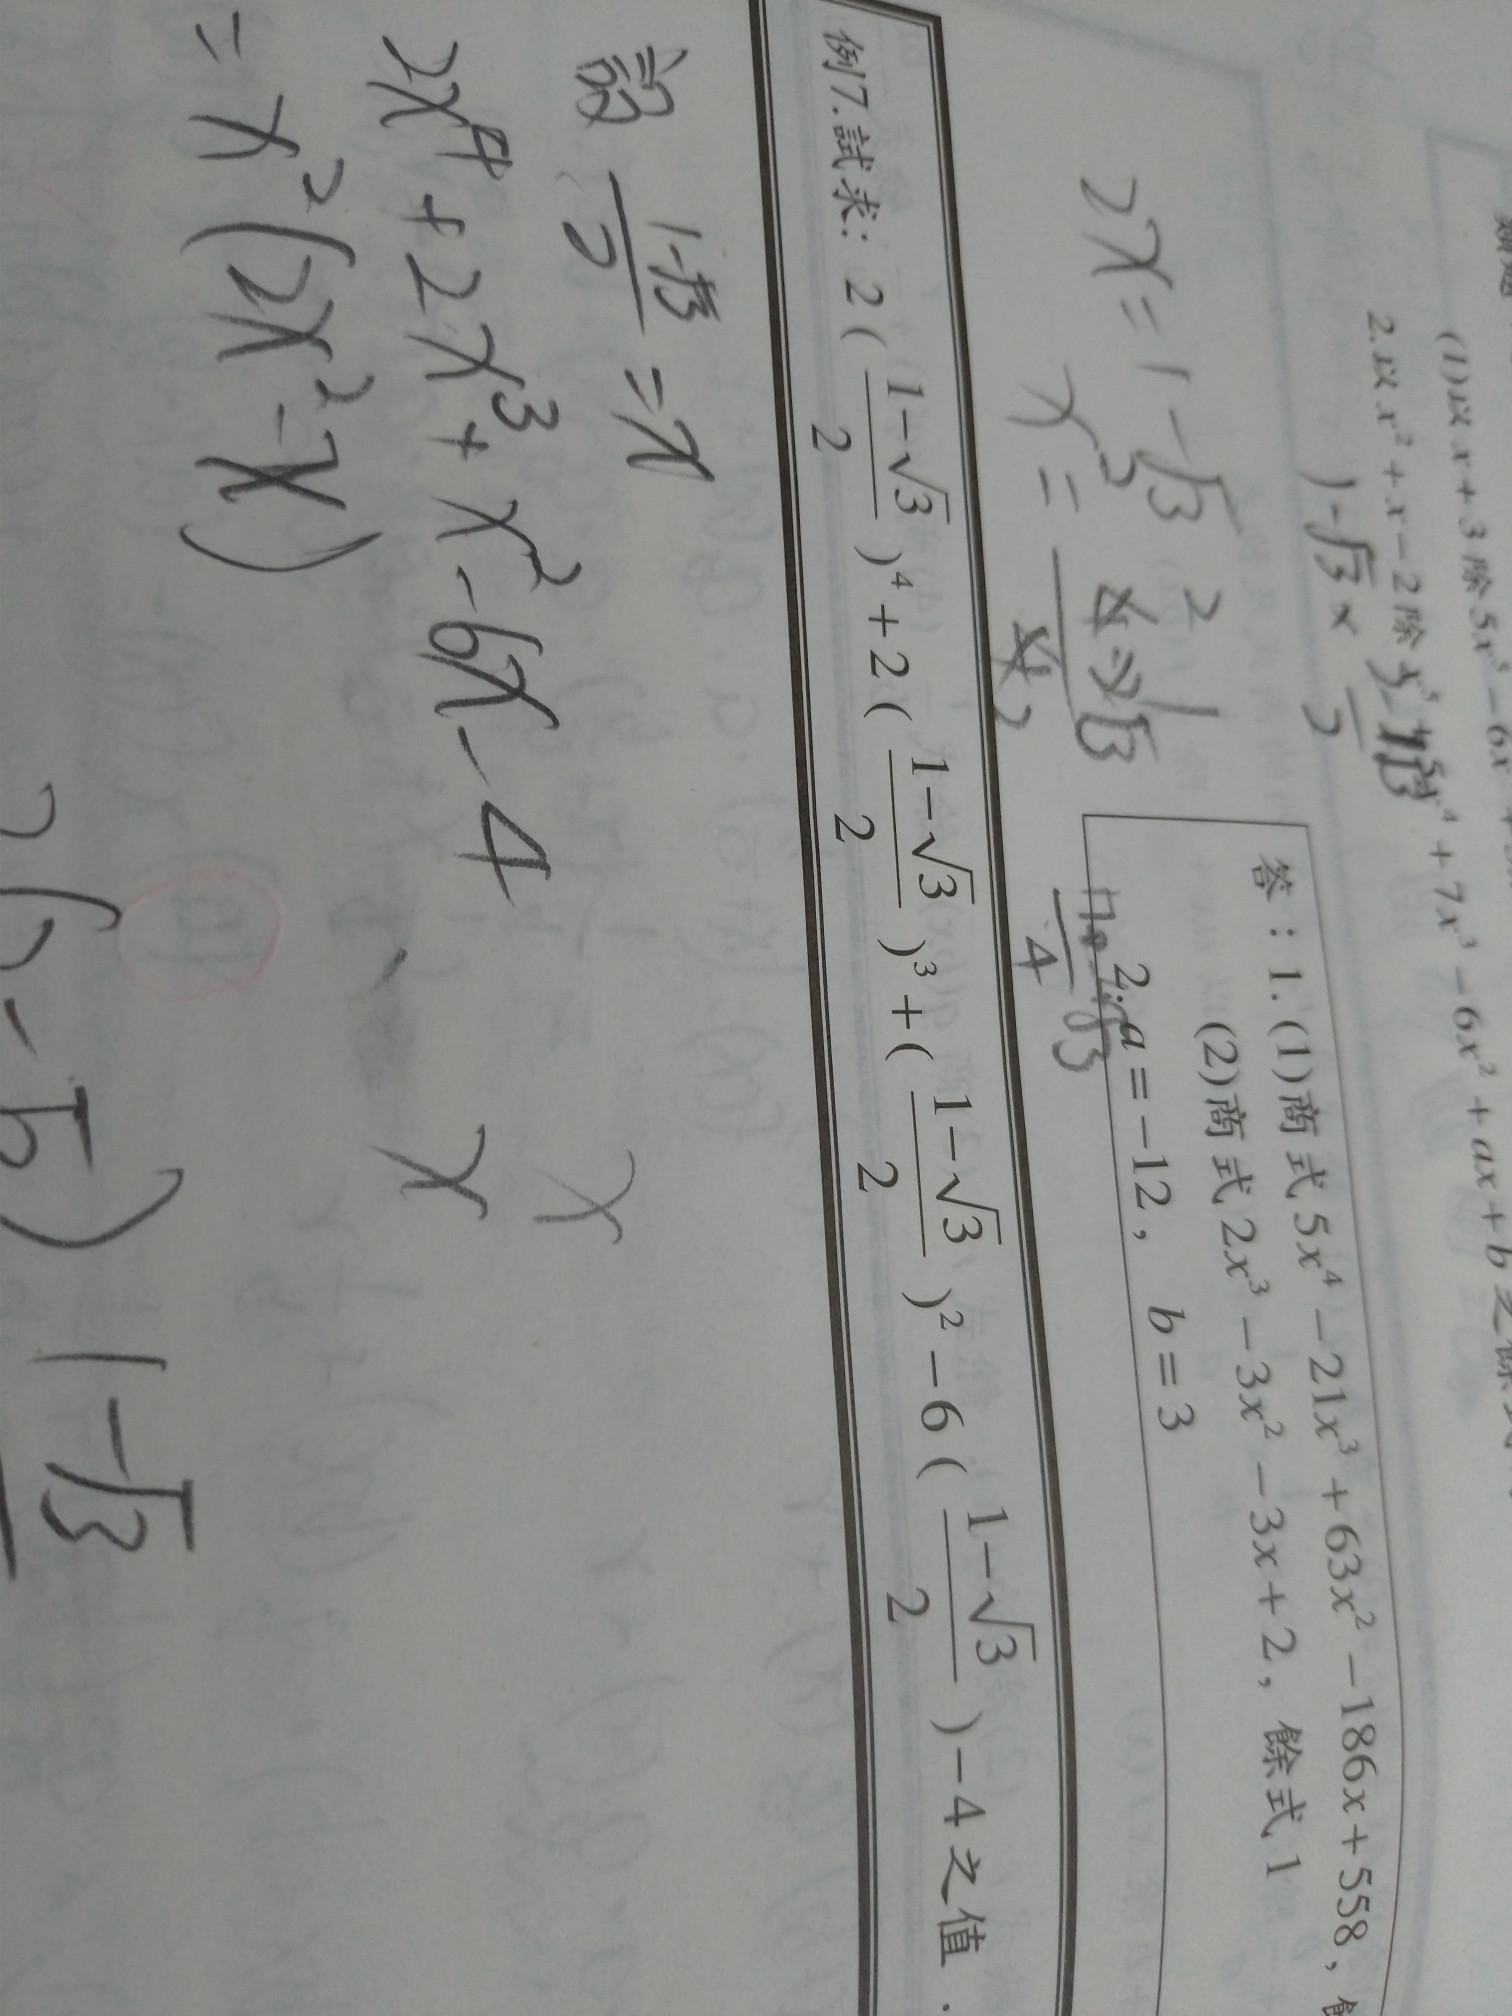 (1)以 x+3 除 5x⁵-6x⁴
2.以 x²+x-2 除 x⁵+5x⁴+7x³-6x²+ax+b 之餘式
答：1.(1)商式 5x⁴-21x³+63x²-186x+558，
(2)商式 2x³-3x²-3x+2，餘式 1
2.a=-12，b=3
2x=1-√3
x²=
例7.試求：2((1-√3)/2)⁴+2((1-√3)/2)³+((1-√3)/2)²-6((1-√3)/2)-4 之值.
設 (1-√3)/2 =x
2x⁴+2x³+x²-6x-4
=x²(2x²-x)
x
x
1-√3